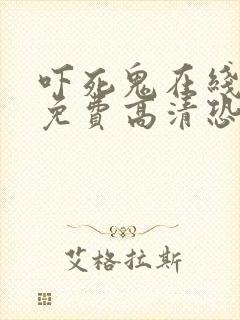 吓死鬼在线
免費高清恐
艾格拉斯